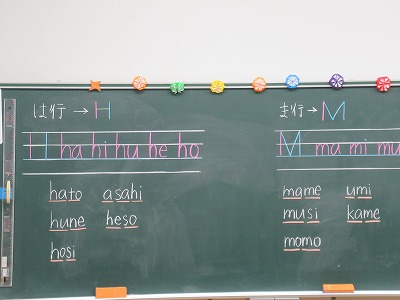 は行→H
H ha hi hu he ho
hato asahi
hune heso
hosi
ま行→M
M ma mi mu
mame umi
musi kame
momo